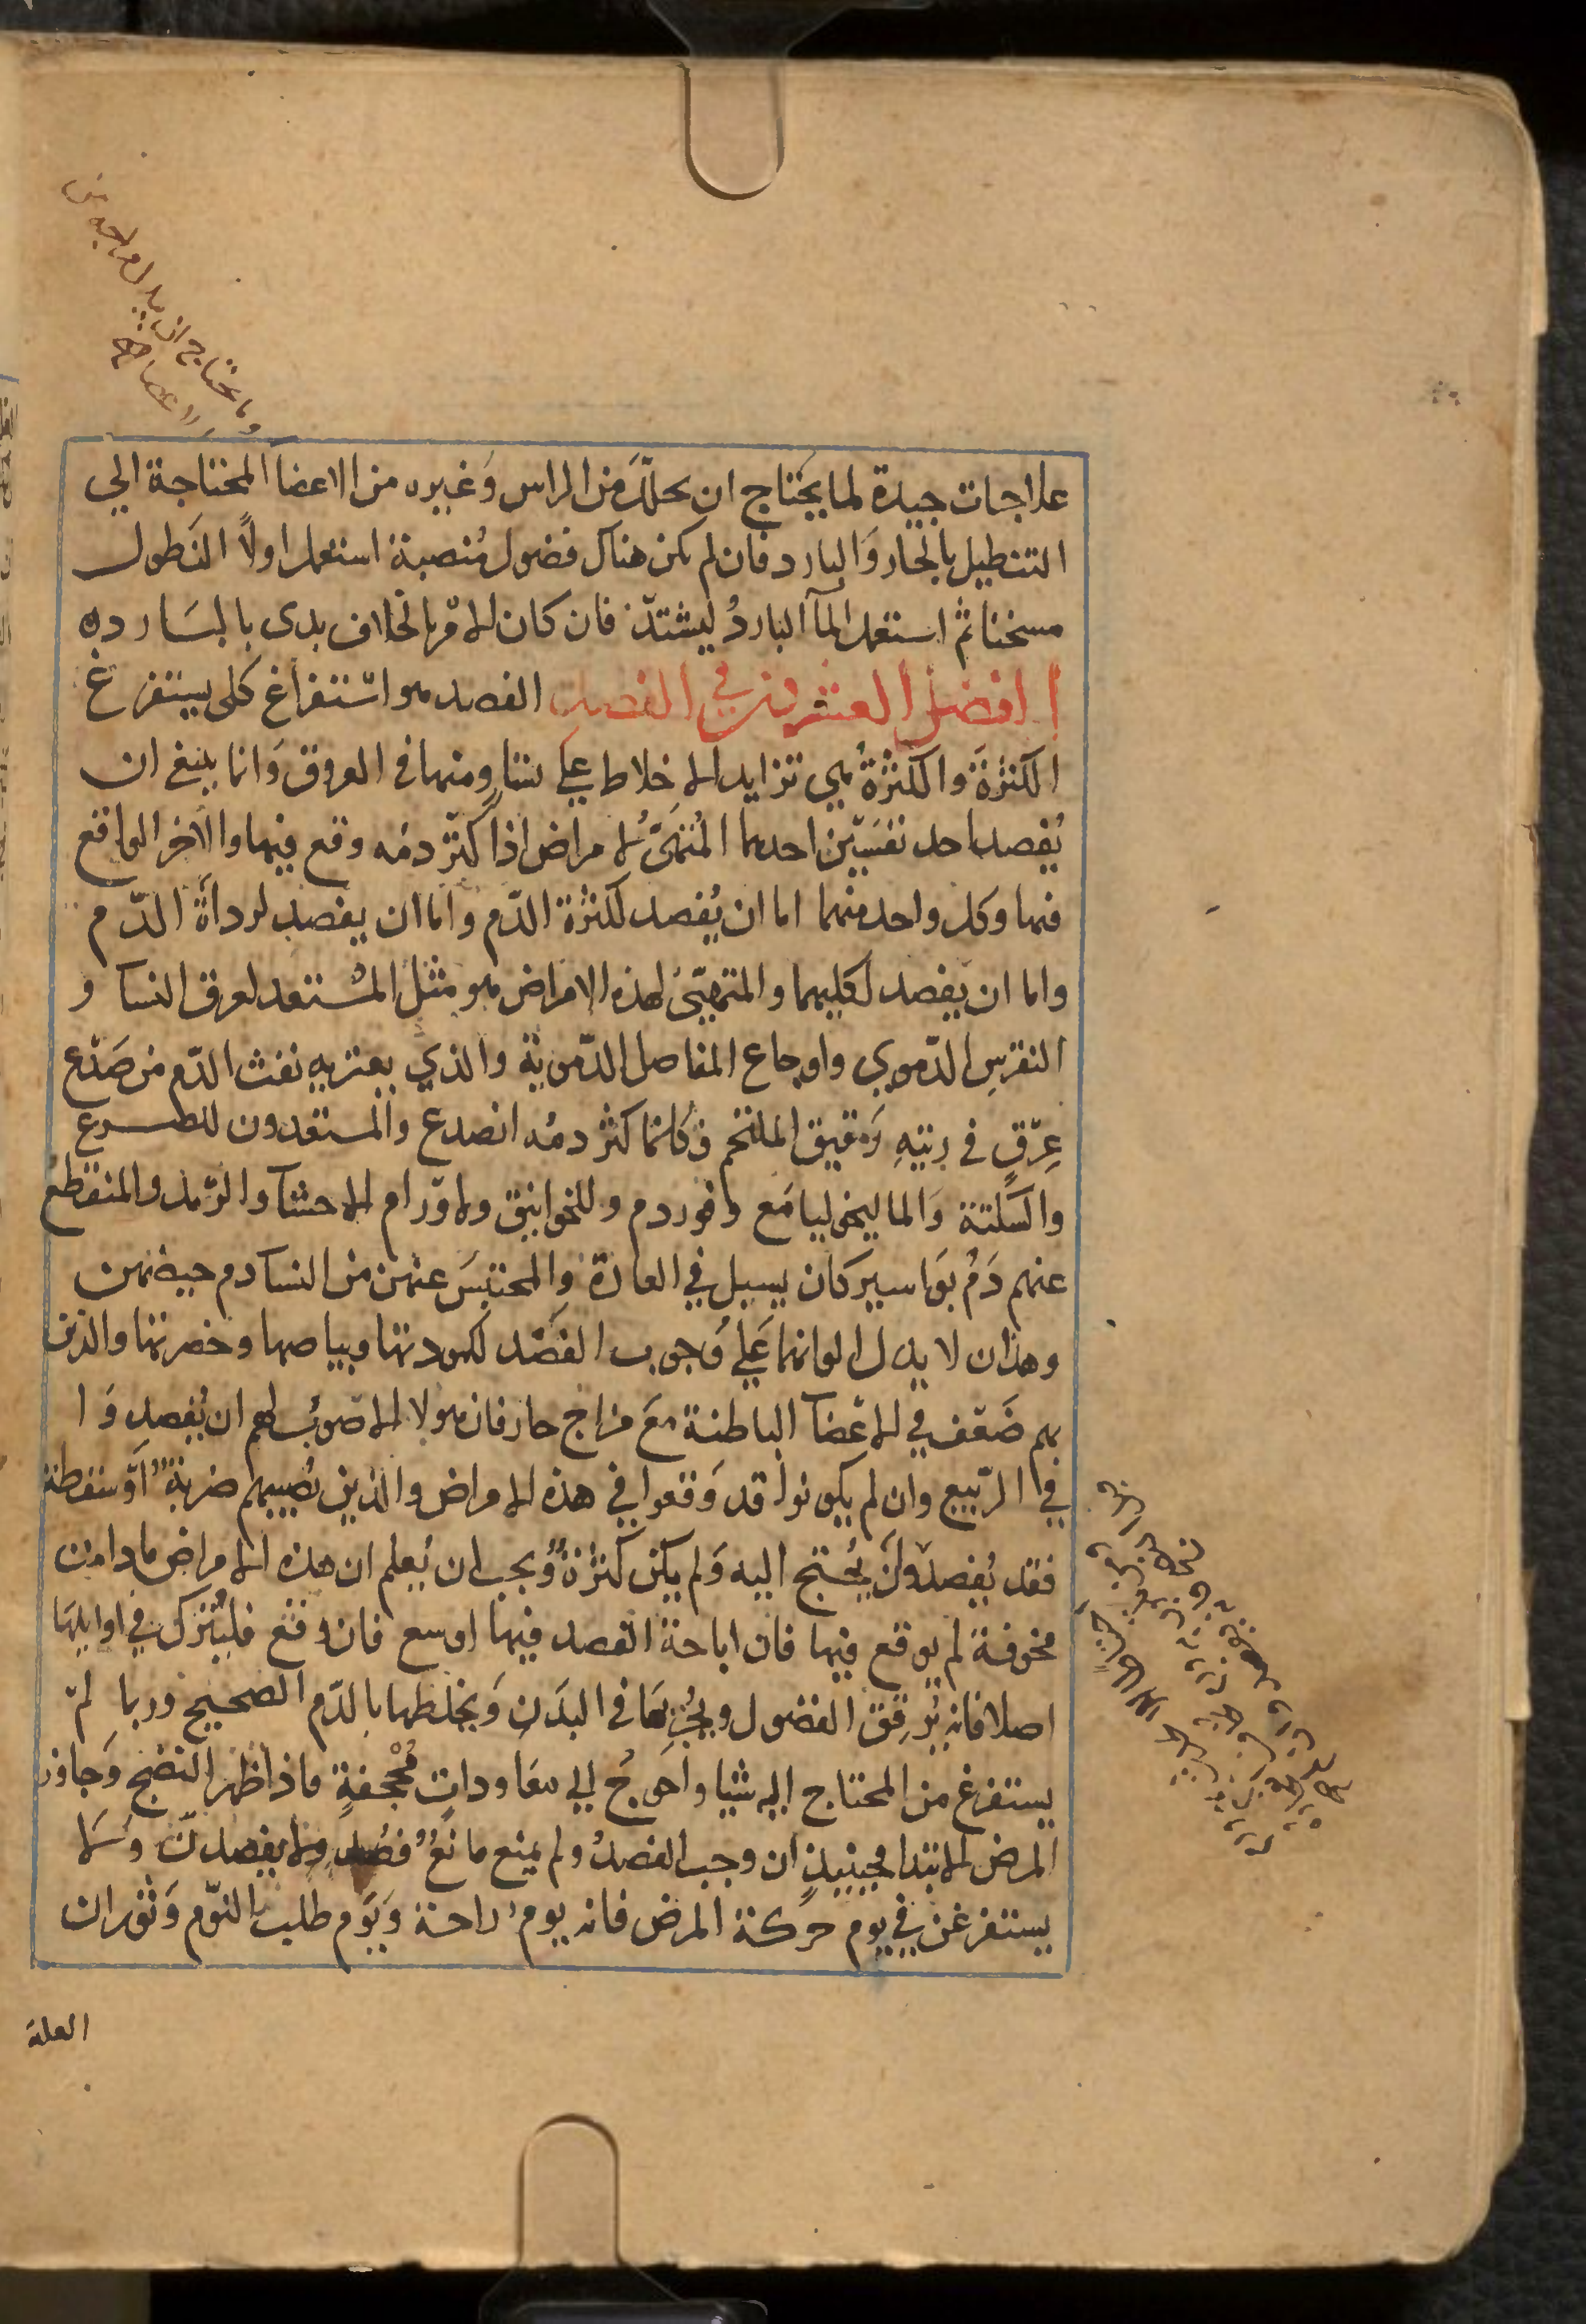 علاجات جيدة لما يحتاج ان يحلل من الراس وَغيره من الاعضآ المحتاجة الي
التنطيل بالحار وَالبارد فان لم يكن هناك فضول مُنصبة استعمل اولاً النَطول
مسخنا ثم استعمل المآ الباردُ ليشتدّ فان كان الامْر بالخلاف بدى بالبَارده
الفصل العشرون في الفصد الفصد هو اسْتفراغ كلى يستفرغ
الكثرَةَ والكثرَةُ هي تزايد الاخلاط عَلي تساوٍ منها في العروق وَانما ينبغي ان
يُفصد احد نفسَيْن احدهما المُتهيّئ لامراض اذا كثرَ دمُه وقع فيها والآخر الواقع
فيها وكل واحد منهما اما ان يُفصد لكثرَة الدّم واما ان يفصد لردأة الدّم
واما ان يفصد لكليهما والمتهيّئ لهذه الامراض هو مثل المسْتعد لعرق النسا و
النقرسِ الدّموي واوجاع المفاصل الدّموية والذي يعتريه نفث الدّم من صَدْع
عِرْقٍ في رئتِهِ رَقيق الملتحم فكلما كثر دمُه انصدع والمستعدون للصرع
والسَكتة وَالماليخوليا مَع وفور دم وللخوانيق ولاوْرام الاحشآ والرّمد والمنقطع
عنهم دَمُ بوَاسير كان يسيل في العادة والمحتبسَ عنهن من النسا دم حيضهن
وهذان لا يدل الوانهما عَلي وُجوب الفَصْد لكمودتها وبياضها وخضرتها والذين
بهم ضَعْف في الاعْضآ الباطنة معَ مزاج حار فان هولا الاصْوبُ لهم ان يُفصدوَا
في الرّبيع وان لم يكونوا قد وَقعوا في هذه الامراض والذين تصيبهم ضربةٌ اوْ سقطة
فقد يُفصدْونَ يُحتج اليه وَلم يكن كثرَةٌ وُيجب ان يُعلم ان هذه الامراض مادامت
مخوفة لم يوقع فيها فان اباحة الفصد فيها اوسع فان وقعَ فليُترك في اوايلهَا
اصلا فانه يُرقِقُ الفضول ويُجْريهَا في البدَنِ وَيخلطها بالدّم الصحيح وربما لمْ
يستفرغ من المحتاج اليه شيا واحَوجُ الي معَاوداتٍ مُجحفةٍ فاذا ظهر النضج وَجاوز
المرض الابتدا فحينيذٍ ان وجب الفصدُ ولم يمنع مانعٌ فُصد ولا يفصدنّ وَلا
يستفرغن في يوم حَركة المرض فانه يوم راحة وَيوْم طلب النوّم وَثوران
العلة